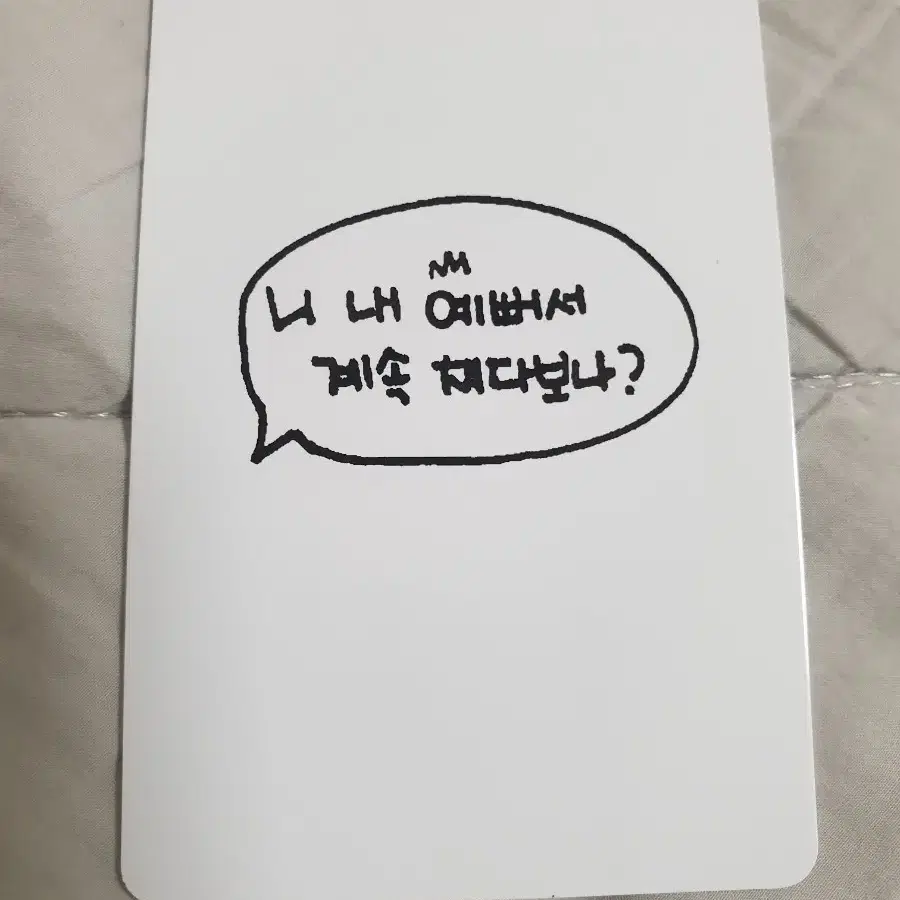 니 내 예뻐서
계속 쳐다봤나?